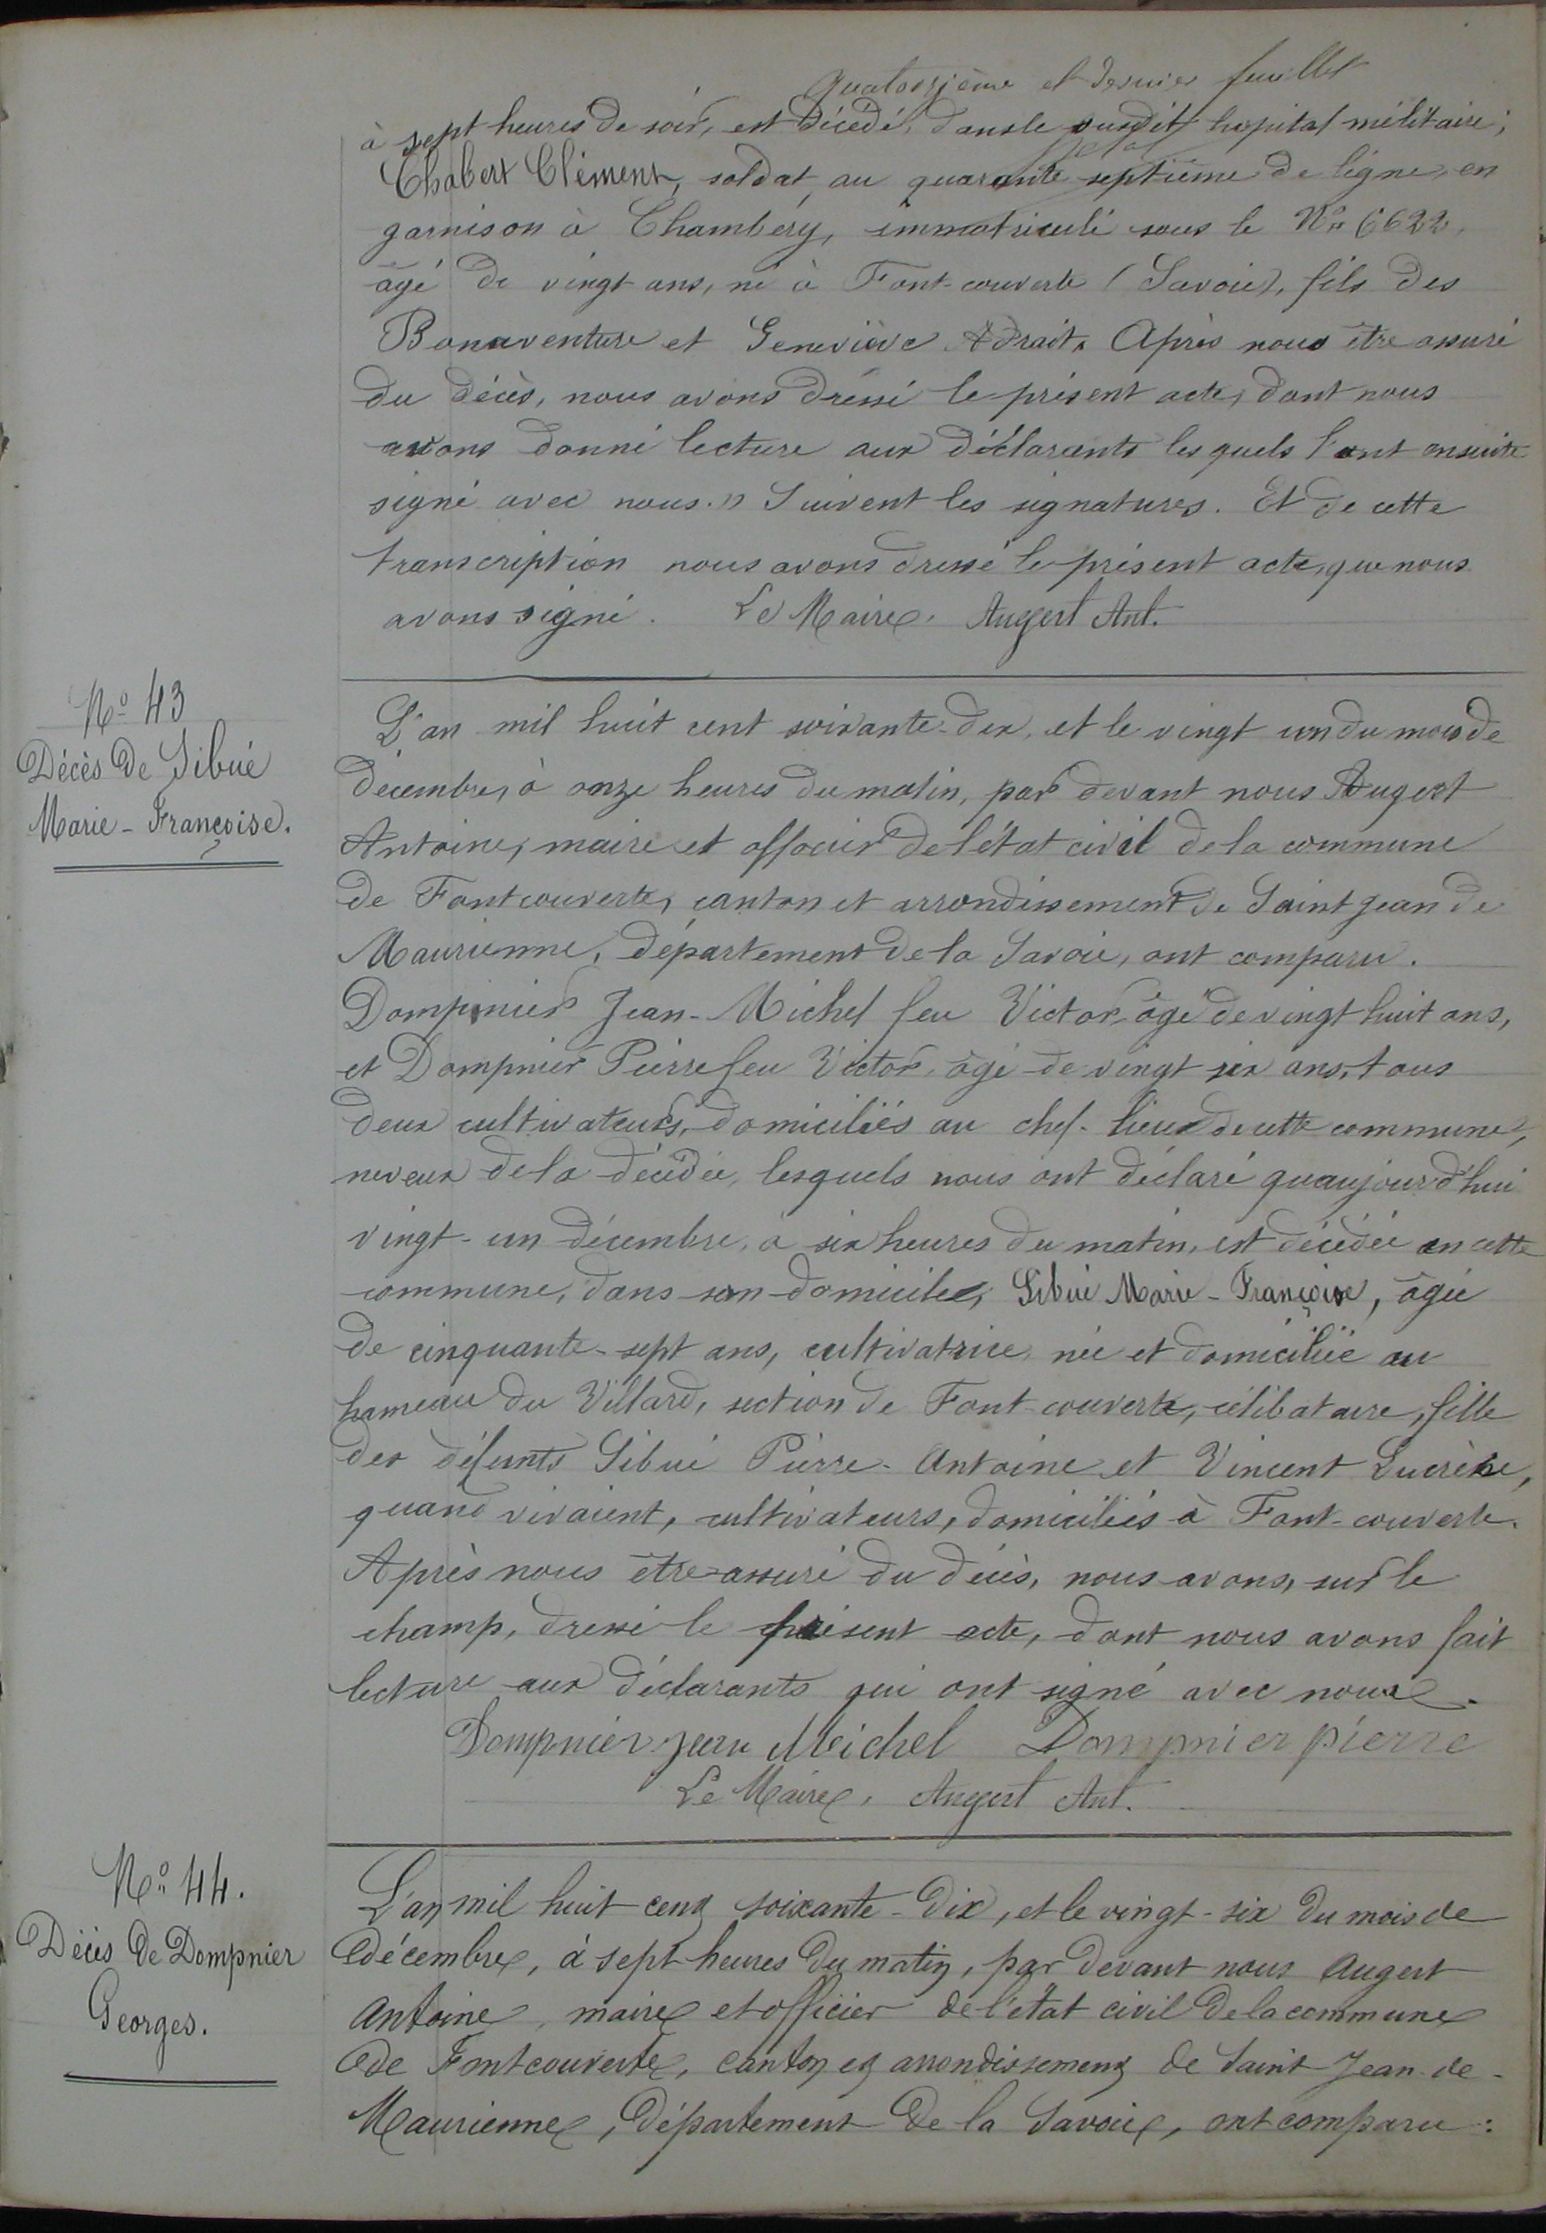 quatorzième et dernier feuillet
à sept heures de soir, est décédé, dans le susdit hopital militaire;
Chabert Clément, soldat au quarante septième de ligne, en
garnison à Chambéry, immatriculé sous le No 6622,
âgé de vingt ans, né à Font-couverte (Savoie), fils des
Bonaventure et Geneviève Adrait. Après nous être assuré
du décès, nous avons dressé le présent acte, dont nous
avons donné lecture aux déclarants les quels l'ont ensuite
signé avec nous." Suivent les signatures. Et de cette
transcription nous avons dressé le présent acte, que nous
avons signé. Le Maire, Augert Ant.
No 43
Décès de Sibué
Marie-Françoise.
L'an mil huit cent soixante-dix, et le vingt un du mois de
décembre, à onze heures du matin, par devant nous Augert
Antoine, maire et officier de l'état civil de la commune
de Fontcouverte, canton et arrondissement de Saint Jean de
Maurienne, département de la Savoie, ont comparu.
Dompnier Jean-Michel feu Victor, âgé de vingt huit ans,
et Dompnier Pierre feu Victor, âgé de vingt six ans, tous
deux cultivateurs, domiciliés au chef-lieu de cette commune,
neveux de la décédée, lesquels nous ont déclaré qu'aujourd'hui
vingt-un décembre, à six heures du matin, est décédée en cette
commune, dans son domicile, Sibué Marie-Françoise, âgée
de cinquante-sept ans, cultivatrice, née et domiciliée au
hameau du Villard, section de Font-couverte, célibataire, fille
des défunts Sibué Pierre-Antoine et Vincent Lucrèce,
quand vivaient, cultivateurs, domiciliés à Font-couverte.
Après nous être assuré du décès, nous avons, sur le
champ, dressé le présent acte, dont nous avons fait
lecture aux déclarants qui ont signé avec nous.
Dompnier jean Michel Dompnier pierre
Le Maire, Augert Ant.
No 44.
Décès de Dompnier
Georges.
L'an mil huit cent soixante-dix, et le vingt-six du mois de
décembre, à sept heures du matin, par devant nous Augert
Antoine, maire et officier de l'état civil de la commune
de Fontcouverte, canton et arrondissement de Saint Jean-de-
Maurienne, département de la Savoie, ont comparu: